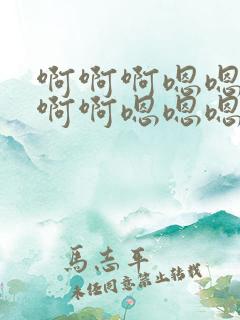 啊啊啊嗯嗯
啊啊嗯嗯嗯
馬志平
未经同意禁止转载